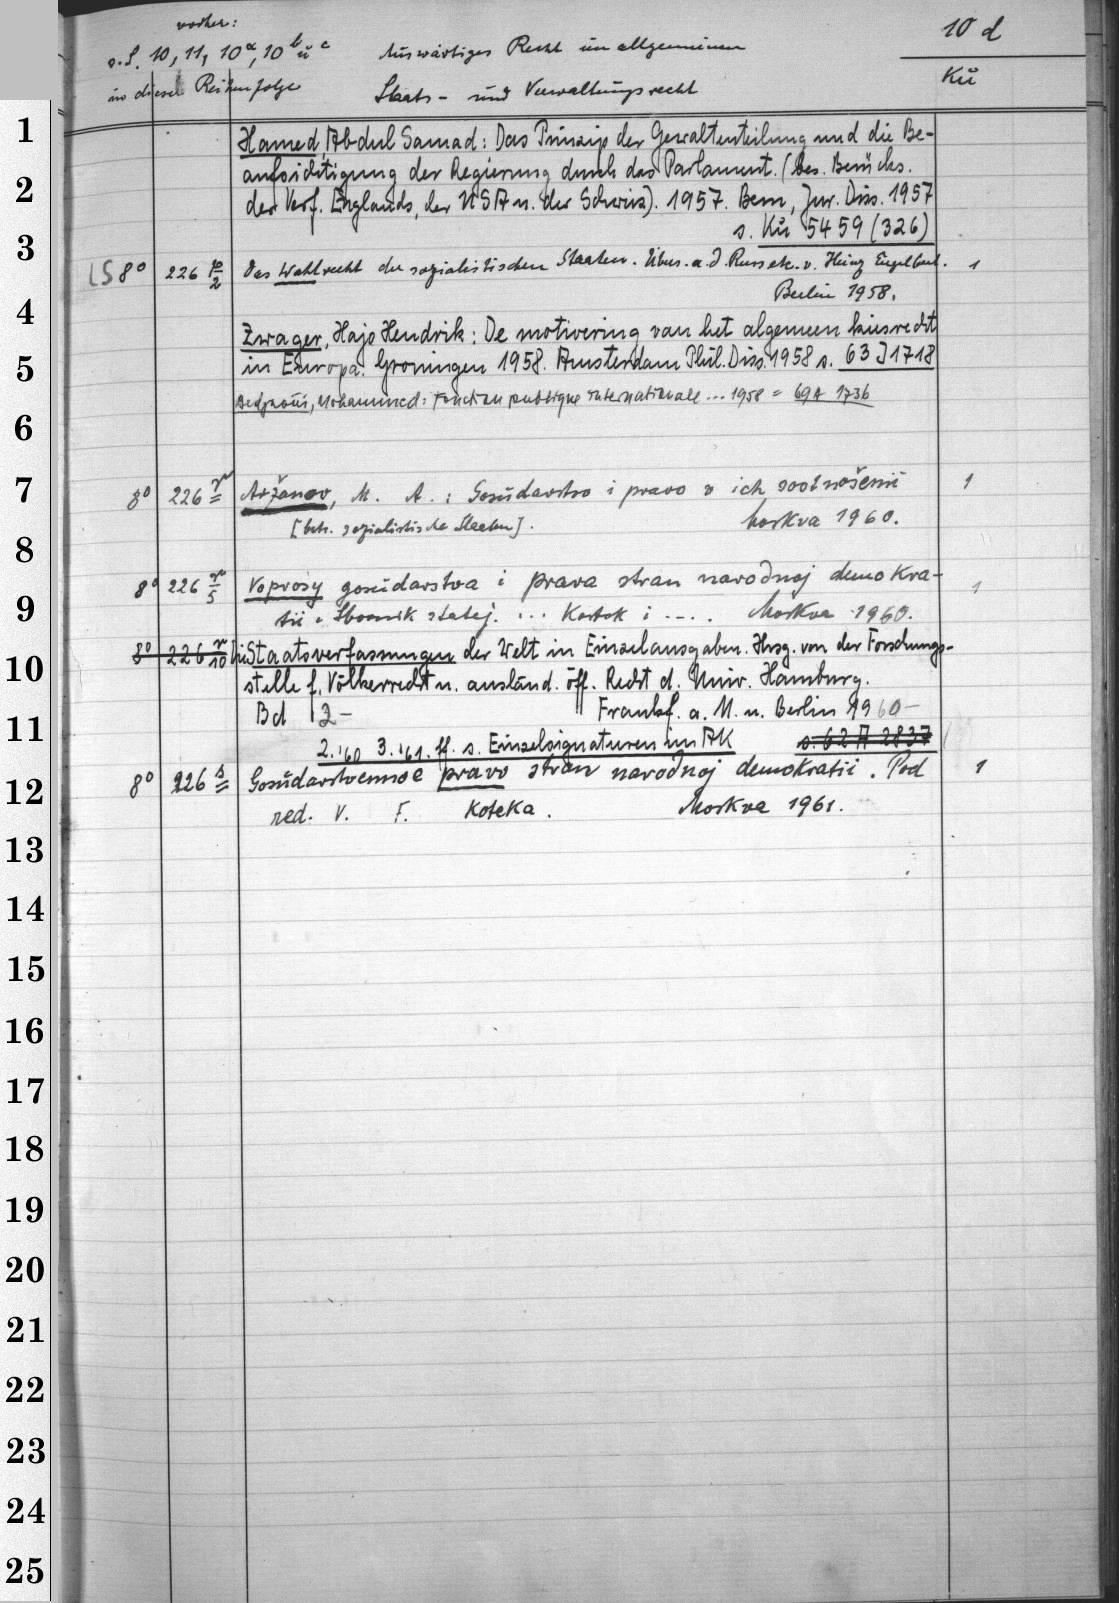 vorher:
s. S. 10, 11, 10a, 10 b u c
in dieser Reihenfolge
Auswärtiges Recht im allgemeinen
Staats- und Verwaltungsrecht
10 d
Kü
1
Hamed, Abdul Samad: Das Prinzip der Gewaltenteilung und die Be-
aufsichtigung der Regierung durch das Parlament. (bes. Berücks.
2
der Verf. Englands, der USA u. der Schweiz). 1957. Bern, Jur. Diss. 1957
s. Kü 5459 (326)
3
LS 8° 226 Das Wahlrecht der sozialistischen Staaten. Übers. a. d. Russ. v. Heinz Engelbert. 1
Berlin 1958.
4
Zwager, Hajo Hendrik: De motivering van het algemeen kiesrecht
5
in Europa. Groningen 1958. Amsterdam Phil. Diss. 1958 s. 63 J 1718
Bedjaoui, Mohammed: Fonction publique internationale ... 1958 = 69 A 1736
6
7
8° 226 r Aržanov, M. A.: Gosudarstvo i pravo v ich sootnošenii 1
[betr. sozialistische Staaten]. Moskva 1960.
8
8° 226 r/5 Voprosy gosudarstva i prava stran narodnoj demokra- 1
9
tii. Sbornik statej. ... Kotok i .... Moskva 1960.
8° 226 r/10 Staatsverfassungen der Welt in Einzelausgaben. Hrsg. von der Forschungs-
10
stelle f. Völkerrecht u. ausländ. öff. Recht d. Univ. Hamburg.
Bd 2- Frankf. a. M. u. Berlin 1960-
11
2.'60 3.'61. ff. s. Einzelsignaturen im AK s. 62 A 2837
8° 226 s Gosudarstvennoe pravo stran narodnoj demokratii. Pod 1
12
red. V. F. Koteka. Moskva 1961.
13
14
15
16
17
18
19
20
21
22
23
24
25